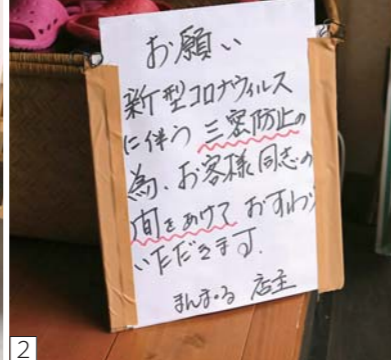 お願い
新型コロナウィルス
に伴う三密防止の
為、お客様同志の
間をあけておすわり
いただきます.
まんまる 店主
2